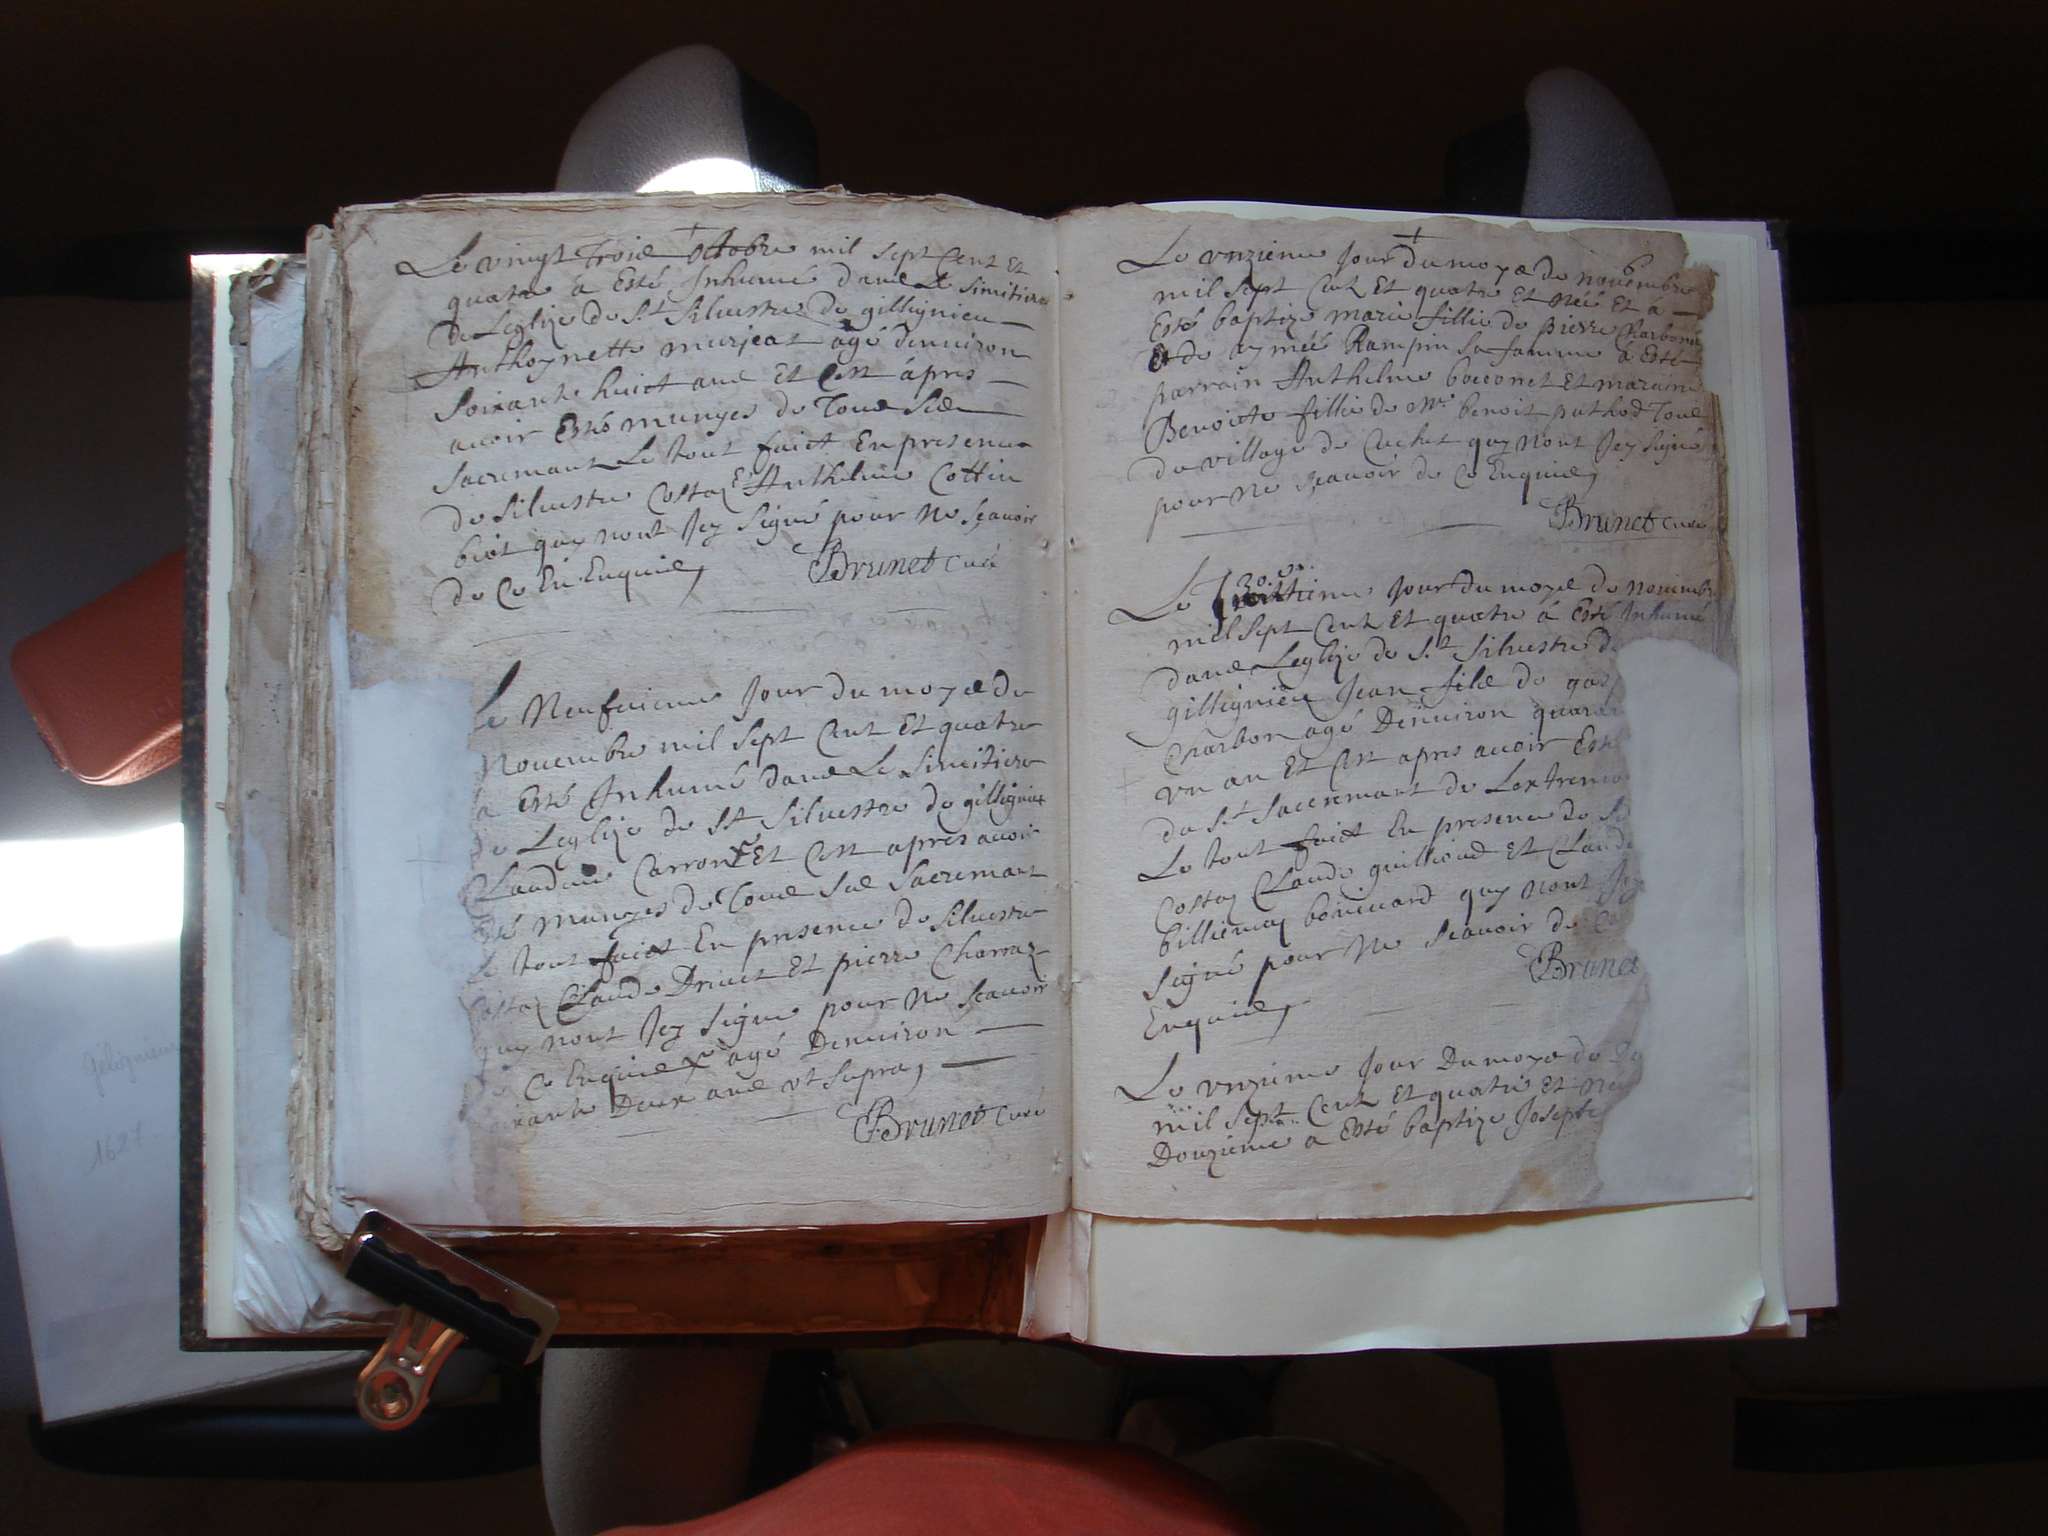 Le vingt Troie octobre mil sept Cent Et
quatre a Esté Inhumé dane Le simitiere
de Leglize de St Siluestre de gillignieu
Anthoynette murjeat agé denuiron
soixante huict ane Et Cest ápres
auoir Estés munyes de Toue See
sacremant Le tout faict En presence
de Siluestre Costaz Et Anthelme Cottin
biot quy nont Jcy signé pour ne sçauoir
de Ce En Enquie,
Brunet Curé
Le Neufuieme Jour du moye de
Nouembre mil sept Cent Et quatre
a Esté Inhumé dane Le Simitiere
de Leglize de St Siluestre de gillignieu
Claudine Carron Et Cest apres auoir
Esté munyes de Toue See Sacremant
Le tout faict En presence de Siluestre
Costaz Claude Driuet Et pierre Charraz
quy nont Jcy signe pour ne sçauoir
de Ce Enquie agé Denuiron
Deux ane vt supra,
Brunet Curé
Le vnzieme Jour du moye de nouembre
mil sept Cent Et quatre Et néé Et á
Esté baptize marie fillie de Pierre Charbon
Et de ayméé Rampin sa famme a Esté
parrain Anthelme boisonet Et maraine
Benoicte fillie de Mre benoit puthod Toue
du village de Cuchet quy nont Jcy signé
pour ne sçauoir de Ce Enquie,
Brunet Curé
30. 9.
Le Trentieme Jour du moye de nouembre
mil sept Cent Et quatre á Esté Inhumé
dane Leglize de St Siluestre de
gillignieu Jean file de
Charbon agé Denuiron
vn an Et Cest apres auoir Esté
du St Sacremant de Lextreme
Le tout faict En presence de
Costaz Claude guilliond Et Claude
billiemaz bouiuard quy nont Jcy
signé pour ne sçauoir de Ce
Enquie,
Brunet
Le vnzieme Jour Du moye de
mil sept Cent Et quatre Et
Douzieme a Esté baptize Josepte
Gélignieu
1627